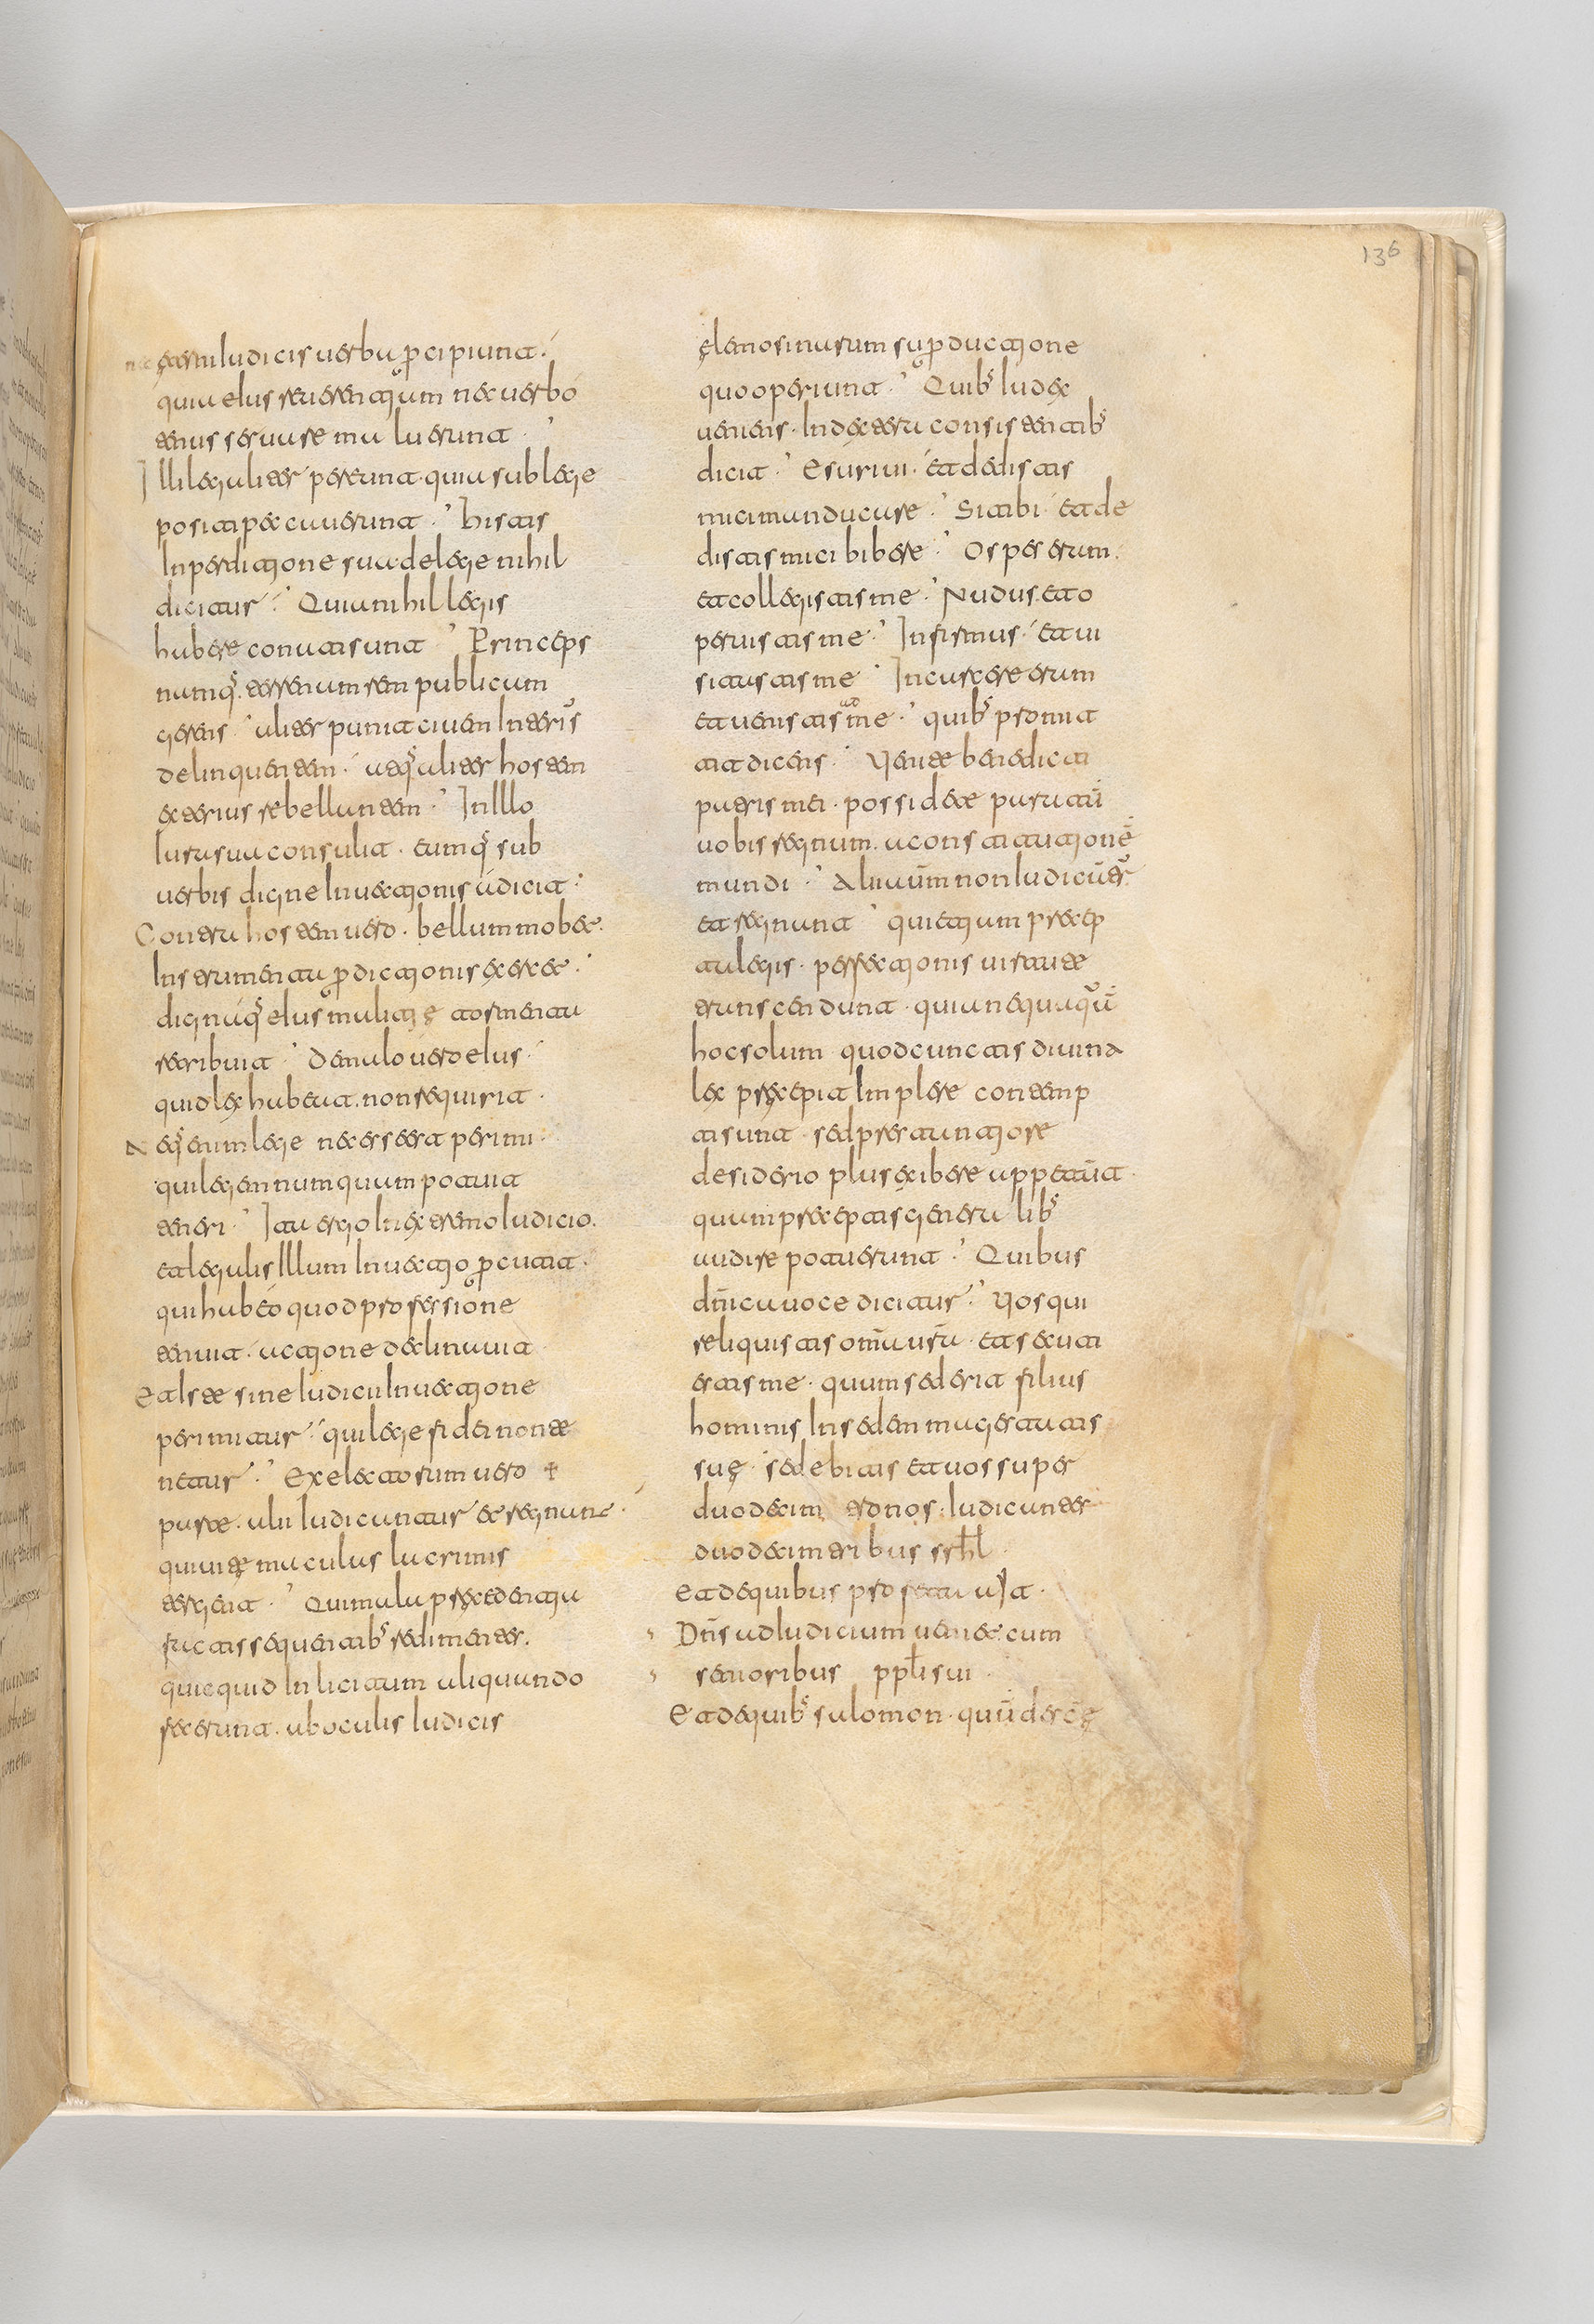 nec ęterni Iudicis uerba ꝑcipiunt.
quia eius reuerentiam nec uerbo
tenus seruare maluerunt.
Illi legaliter pereunt. quia sub lege
positi peccauerunt. Histis
In perditione sua de lege nihil
dicitur. Quia nihil legis
habere conati sunt. Princeps
namq; terrenam rem publicam
gerens. aliter punit ciuem Interius
delinquentem. atq; aliter hostem
exterius rebellantem. In Illo
Iura sua consulit. eumq; sub
uerbis digne Inuectionis adicit.
Contra hostem uero. bellum mobet.
Instrumenta ꝑdictionis exercet.
dignaq; eius malitię tormenta
retribuit. De malo uero eius.
quid lex habeat. non requirit.
Neq; enim lege necesse est perimi.
qui legem numquam potuit
teneri. Ita ergo In extremo Iudicio.
et legalis Illum Inuectio ꝑcutit.
qui hab eo quod professione
tenuit. actione declinauit
Et Iste sine Iudicii Inuectione
perimitur. qui lege fidei non te
netur. Ex electorum uero
parte. alii Iudicantur et regnant
qui uitę maculas lacrimis
tergent. Qui mala precedentia
factis sequentib; redimentes.
quicquid Inlicitum aliquando
fecerunt. ab oculis Iudicis
ęlemosinarum suꝑductione
quooperiunt. Quib; Iudex
ueniens. In dextera consistentib;
dicit. Esuriui. et dedistis
mici manducare. Sitibi. et de
distis mici bibere. Ospes eram.
et collegistis me. Nudus. et o
peruistis me. Infirmus. et ui
sitastis me. In carcere eram
et uenistis ad me. quib; promit
tit dicens. Uenite benedicti
patris mei. possidete paratū
uobis regnum. a constitutionē
mundi. Alii uūm non Iudicāt̄
et regnant. qui etiam precep
ta legis. perfectionis uirtute
transcendunt. quia nequaquā
hoc solum. quod cunctis diuina
lex precepit Implere contemp
ti sunt. sed prestantiore
desiderio plus exibere appetūt.
quam preceptis generalib;
audire potuerunt. Quibus
dn̄ica uoce dicitur. Uos qui
reliquistis omn̄ ur̄a. et secuti
estis me. quum sederit filius
hominis In sedem magestatis
suę. sedebitis et uos super
duodecim tronos. Iudicantes
duodecim tribus srhl.
Et de quibus profeta ait.
Dn̄s ad Iudicium ueniet. cum
senioribus ppl̄i sui.
Et de quib; salomon. quū de ecl̄ę